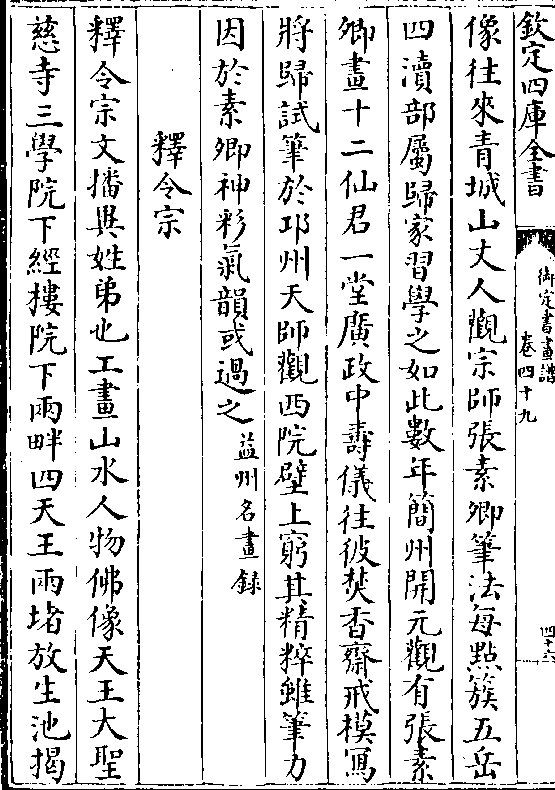 欽定四庫全書
御定書畫譜
卷四十九
四十六
像往來青城山丈人觀宗師張素卿筆法每點簇五岳
四瀆部屬歸家習學之如此數年簡州開元觀有張素
卿畫十二仙君一堂廣政中壽儀往彼焚香齋戒模寫
將歸試筆於邛州天師觀西院壁上窮其精粹雖筆力
因於素卿神彩氣韻或過之益州名畫録
釋令宗
釋令宗文播異姓弟也工畫山水人物佛像天王大聖
慈寺三學院下經樓院下兩畔四天王兩堵放生池揭